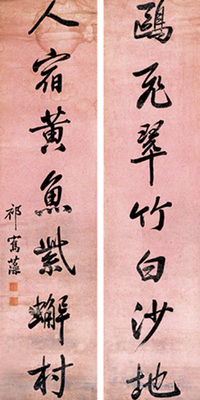 鷗飛翠竹白沙地
人宿黃魚紫蟹村
祁寯藻